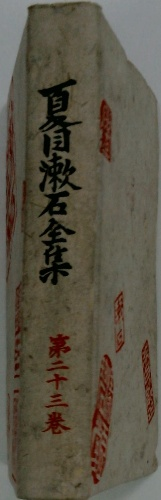 夏目漱石全集
第二十三巻